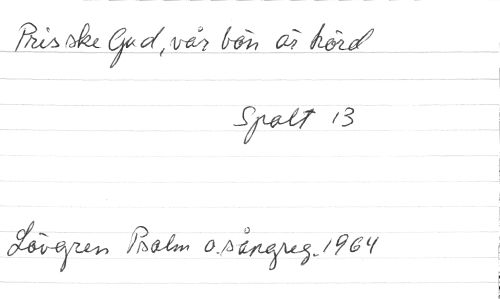 Pris ske Gud, vår bön är hörd
Spalt 13
Lövgren Psalm o. sångreg. 1964